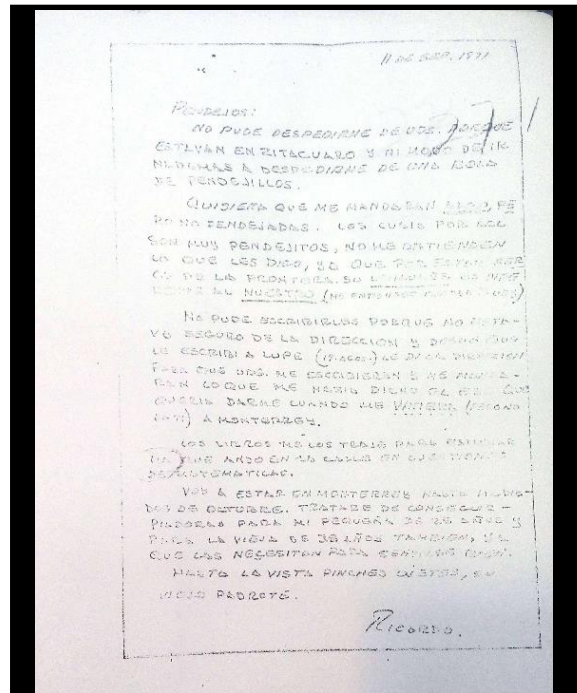 11 DE SEP. 1971
PENDEJOS:
NO PUDE DESPEDIRME DE UDS. PORQUE
ESTAVAN EN ZITACUARO Y NI MODO DE IR
NADAMAS A DESPEDIRME DE UNA BOLA
DE PENDEJILLOS.
QUISIERA QUE ME MANDARAN ALGO, PE
RO NO PENDEJADAS. LOS CUATES POR ACA
SON MUY PENDEJITOS, NO ME ENTIENDEN
LO QUE LES DIGO, YA QUE POR ESTAR CER
CA DE LA FRONTERA SU ES
AL NUESTRO (NO
NO PUDE ESCRIBIRLES PORQUE NO ESTA-
VA SEGURO DE LA DIRECCION Y
LE ESCRIBI A LUPE LE DI LA DIRECCION
PARA QUE UDS. ME ESCRIBIERAN Y ME MANDA-
RAN LO QUE ME HABIA DICHO EL QUE
QUERIA DARME CUANDO ME
A MONTERREY.
LOS LIBROS ME LOS TRAJE PARA ESTUDIAR
YA QUE ANDO EN LA CALLE EN CUESTIONES
DE MATEMATICAS.
VOY A ESTAR EN MONTERREY HASTA MEDIA-
DOS DE OCTUBRE. TRATARE DE CONSEGUIR
PILDORAS PARA MI PEQUEÑA DE 22 AÑOS Y
PARA LA VIEJA DE 38 AÑOS TAMBIEN, YA
QUE LAS NECESITAN PARA SENTIRSE BIEN.
HASTA LA VISTA PINCHES SU
VIEJO PADROTE.
RICARDO.